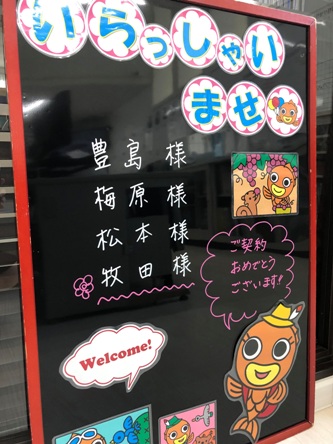 いらっしゃい
ませ
豊島 様
梅原 様
松本 様
牧田 様
ご契約
おめでとう
ございます!
Welcome!